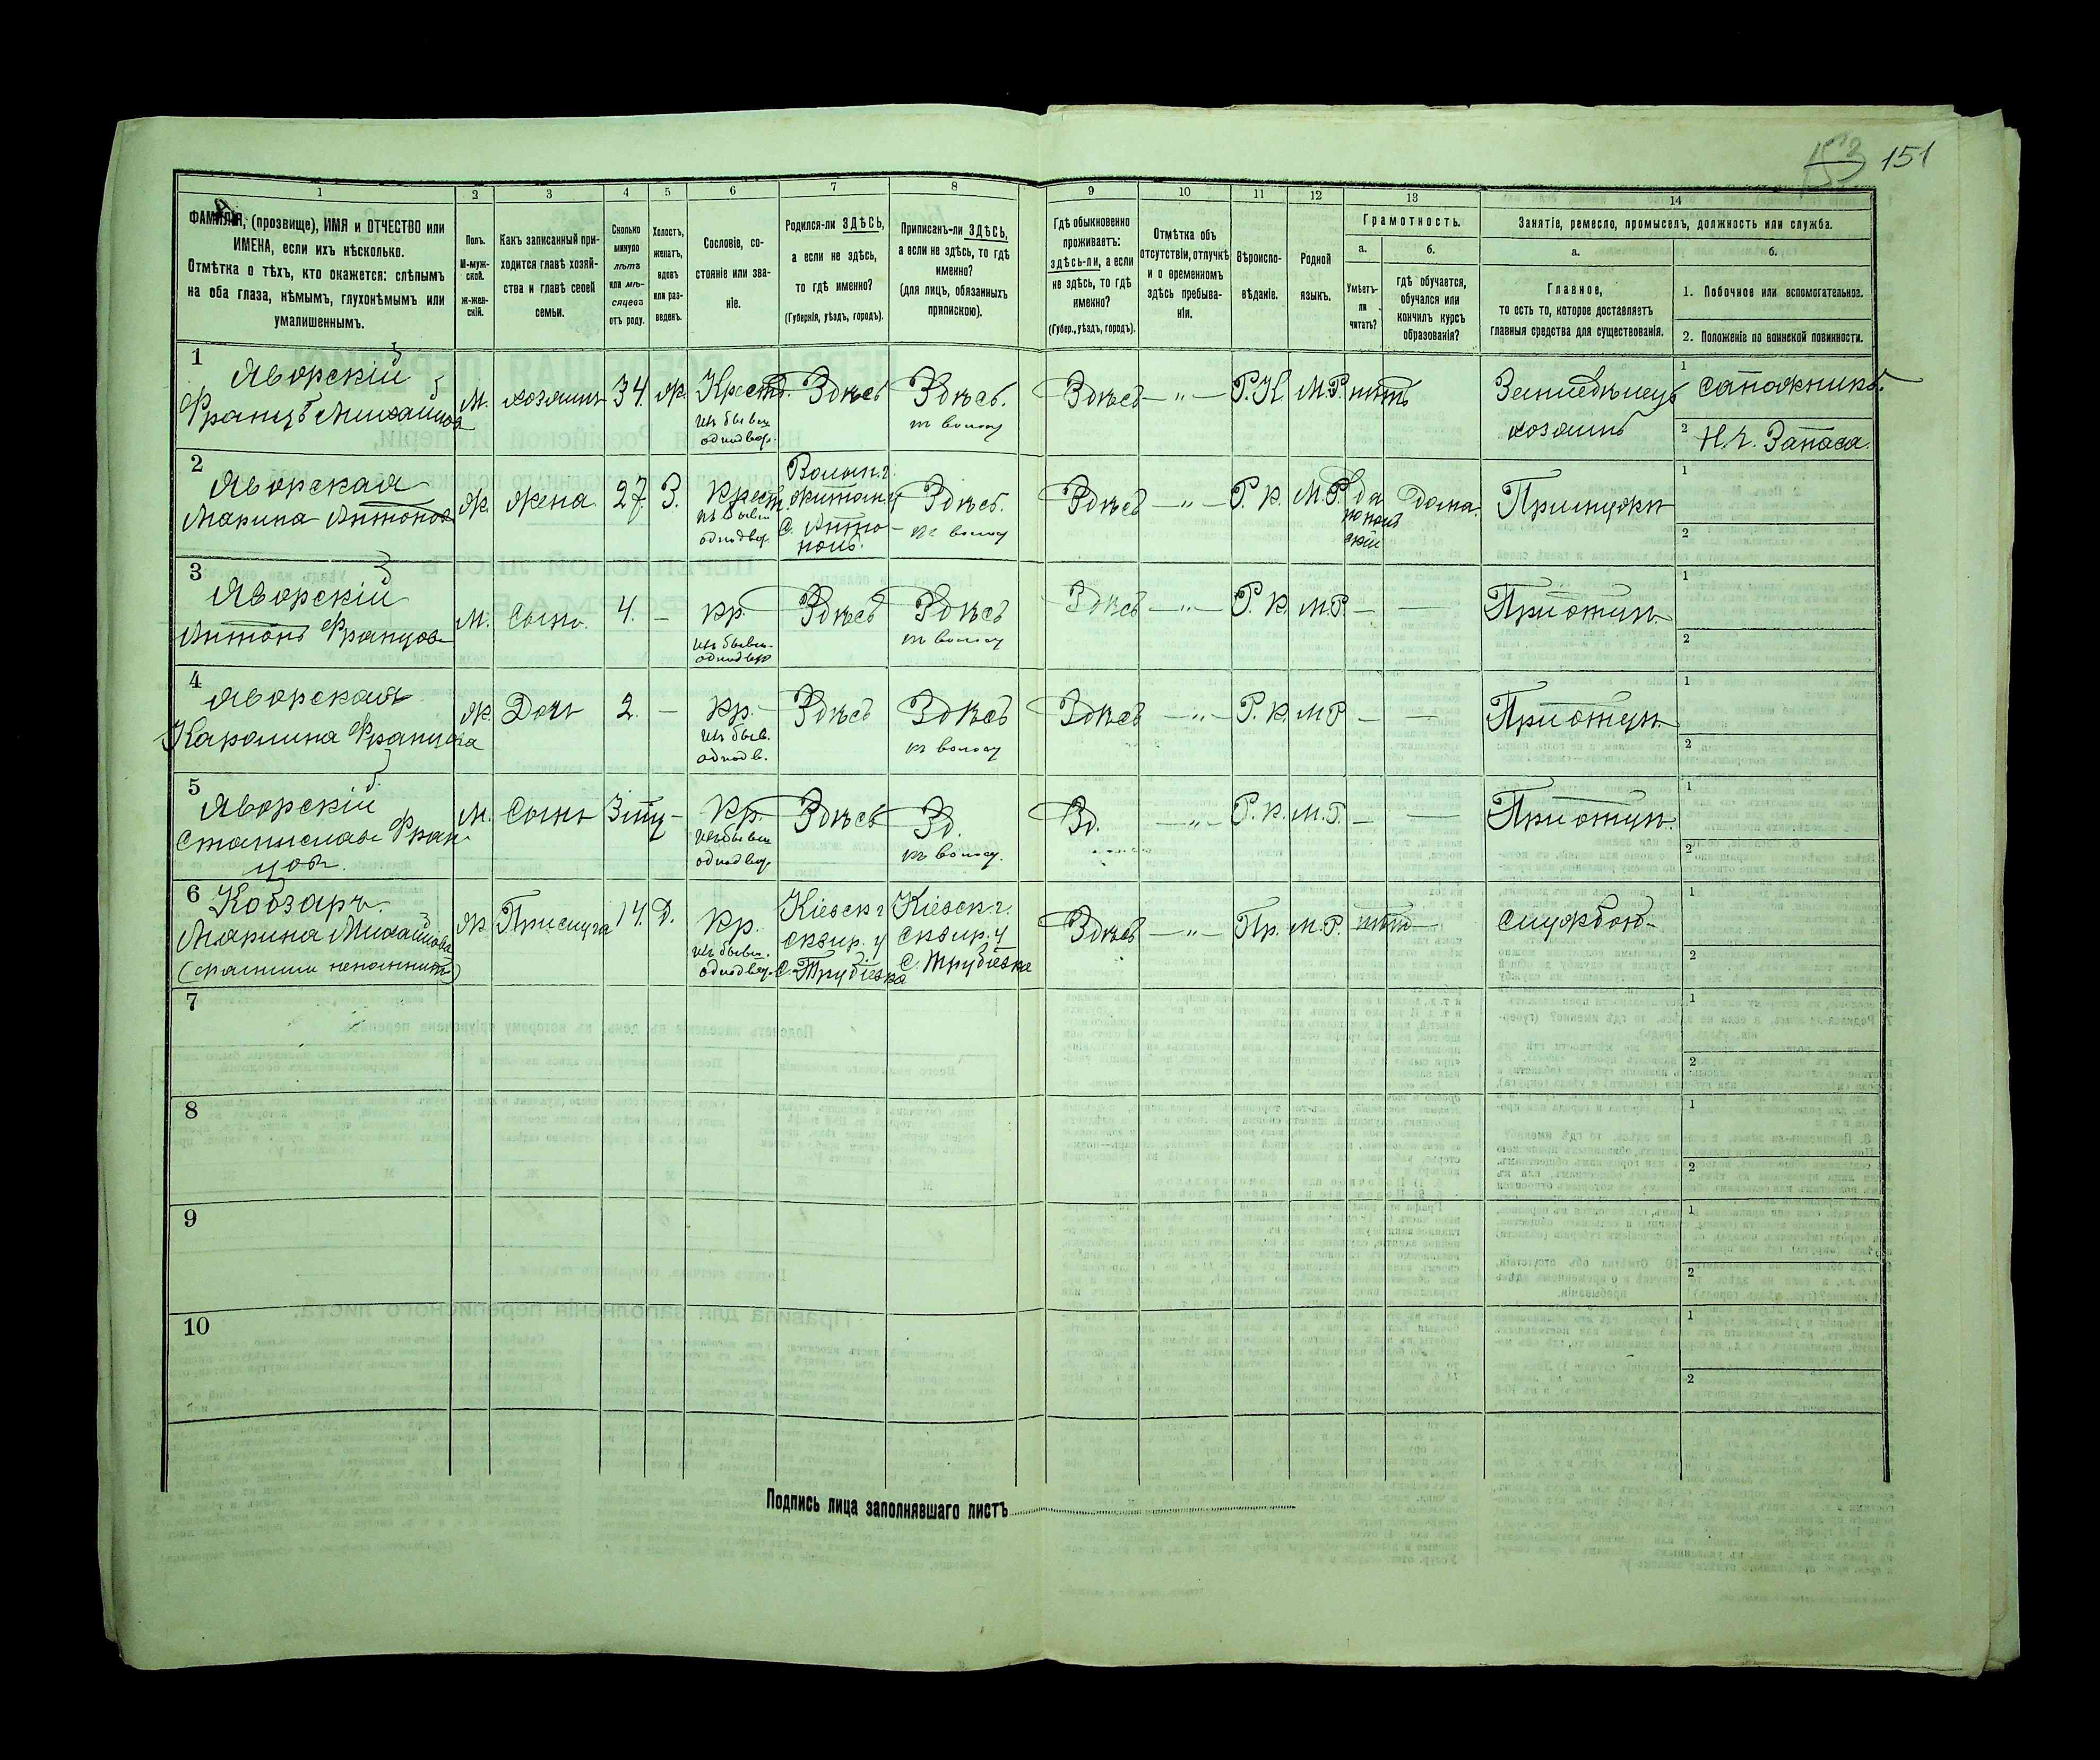 153 151
1 2 3 4 5 6 7 8 9 10 11 12 13 14
ФАМИЛІЯ, (прозвище), ИМЯ и ОТЧЕСТВО или
ИМЕНА, если ихъ нѣсколько.
Отмѣтка о тѣхъ, кто окажется: слѣпымъ
на оба глаза, нѣмымъ, глухонѣмымъ или
умалишеннымъ.
Полъ.
М-муж-
ской.
ж-жен-
скій.
Какъ записанный при-
ходится главѣ хозяй-
ства и главѣ своей
семьи.
Сколько
минуло
лѣтъ
или мѣ-
сяцевъ
отъ роду.
Холостъ,
женатъ,
вдовъ
или раз-
веденъ.
Сословіе, со-
стояніе или зва-
ніе.
Родился-ли ЗДѢСЬ,
а если не здѣсь,
то гдѣ именно?
(Губернія, уѣздъ, городъ).
Приписанъ-ли ЗДѢСЬ,
а если не здѣсь, то гдѣ
именно?
(для лицъ, обязанныхъ
припискою).
Гдѣ обыкновенно
проживаетъ:
здѣсь-ли, а если
не здѣсь, то гдѣ
именно?
(Губер., уѣздъ, городъ).
Отмѣтка объ
отсутствіи, отлучкѣ
и о временномъ
здѣсь пребыва-
ніи.
Вѣроиспо-
вѣданіе.
Родной
языкъ.
Грамотность.
а.
Умѣетъ-
ли
читать?
б.
гдѣ обучается,
обучался или
кончилъ курсъ
образованія?
Занятіе, ремесло, промыселъ, должность или служба.
а.
Главное,
то есть то, которое доставляетъ
главныя средства для существованія.
б.
1. Побочное или вспомогательное.
2. Положеніе по воинской повинности.
1
Яворскій
Францъ Михайлов
М.
хозяинъ
34.
Ж.
Крест.
изъ бывш
однодвор.
Здѣсь
Здѣсь.
въ волос
Здѣсь
— „ —
Р. К.
М.Р.
нѣтъ
Земледѣлецъ
хозяинъ
1 сапожникъ.
2 Н. ч. Запаса.
2
Яворская
Марина Антонов
Ж.
жена
27.
З.
Крест.
изъ бывш
однодвор.
Волын. г.
житом. у
С. Анто-
поль.
Здѣсь.
въ волос
Здѣсь
— „ —
Р. К.
М.Р.
да
по поль
скій
дома.
При мужѣ
1
2
3
Яворскій
Антонъ Францов
М.
Сынъ.
4.
—
Кр.
изъ бывш.
однодвор
Здѣсь
Здѣсь
въ волос
Здѣсь
— „ —
Р. К.
М.Р.
—
—
При отцѣ
1
2
4
Яворская
Каролина Францова
Ж.
Дочь
2.
—
Кр.
изъ быв.
однодв.
Здѣсь
Здѣсь
въ волос
Здѣсь
— „ —
Р. К.
М.Р
—
—
При отцѣ
1
2
5
Яворскій
Станислав Фран
цов.
М.
Сынъ
—
Кр.
изъ бывш
однодвор.
Здѣсь
Зд.
въ волос.
Зд.
— „ —
Р. К.
М.Р.
—
—
При отцѣ.
1
2
6
Кобзарь.
Марина Михайлова
Ж.
Прислуга
14.
Д.
Кр.
изъ бывш.
однодвор.
Кіевск г
сквир. у
С. Трубіевка
Кіевск. г.
сквир. у
С. Трубіевка
Здѣсь
— „ —
Пр.
М.Р.
нѣтъ
—
службою
1
2
7
1
2
8
1
2
9
1
2
10
1
2
Подпись лица заполнявшаго листъ